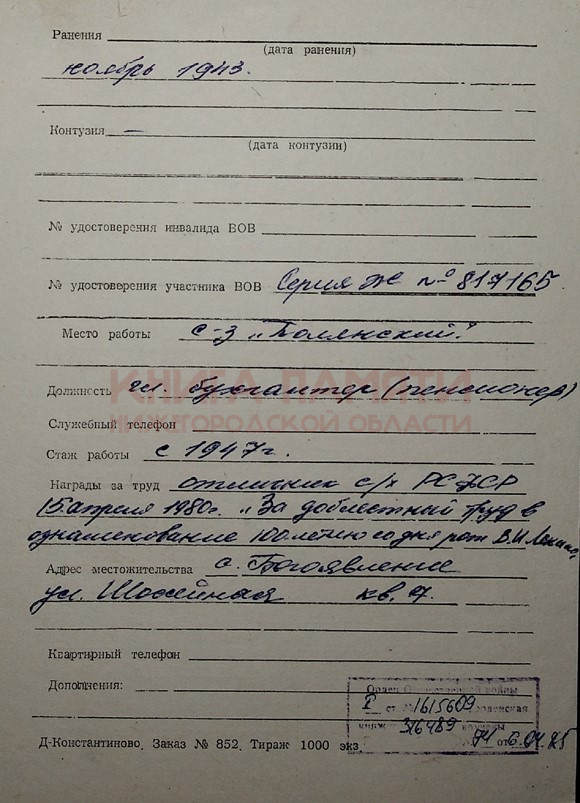 Ранения
(дата ранения)
ноябрь 1943.
Контузия —
(дата контузии)
№ удостоверения инвалида ВОВ
№ удостоверения участника ВОВ Серия Ж № 817165
Место работы с-з „Полянский"
КНИГА ПАМЯТИ
Должность гл. бухгалтер (пенсионер)
НИЖЕГОРОДСКОЙ ОБЛАСТИ
Служебный телефон
Стаж работы с 1947 г.
Награды за труд отличник с/х РСФСР
15 апреля 1980г. „За доблестный труд в
ознаменование 100летию со дня рож В.И Ленина
Адрес местожительства с. Богоявление
ул. Шоссейная кв. 7.
Квартирный телефон
Дополнения:
Орден Отечественной войны
ст. № 1615609
316489
от 6.04.85
Д-Константиново. Заказ № 852. Тираж 1000 экз.